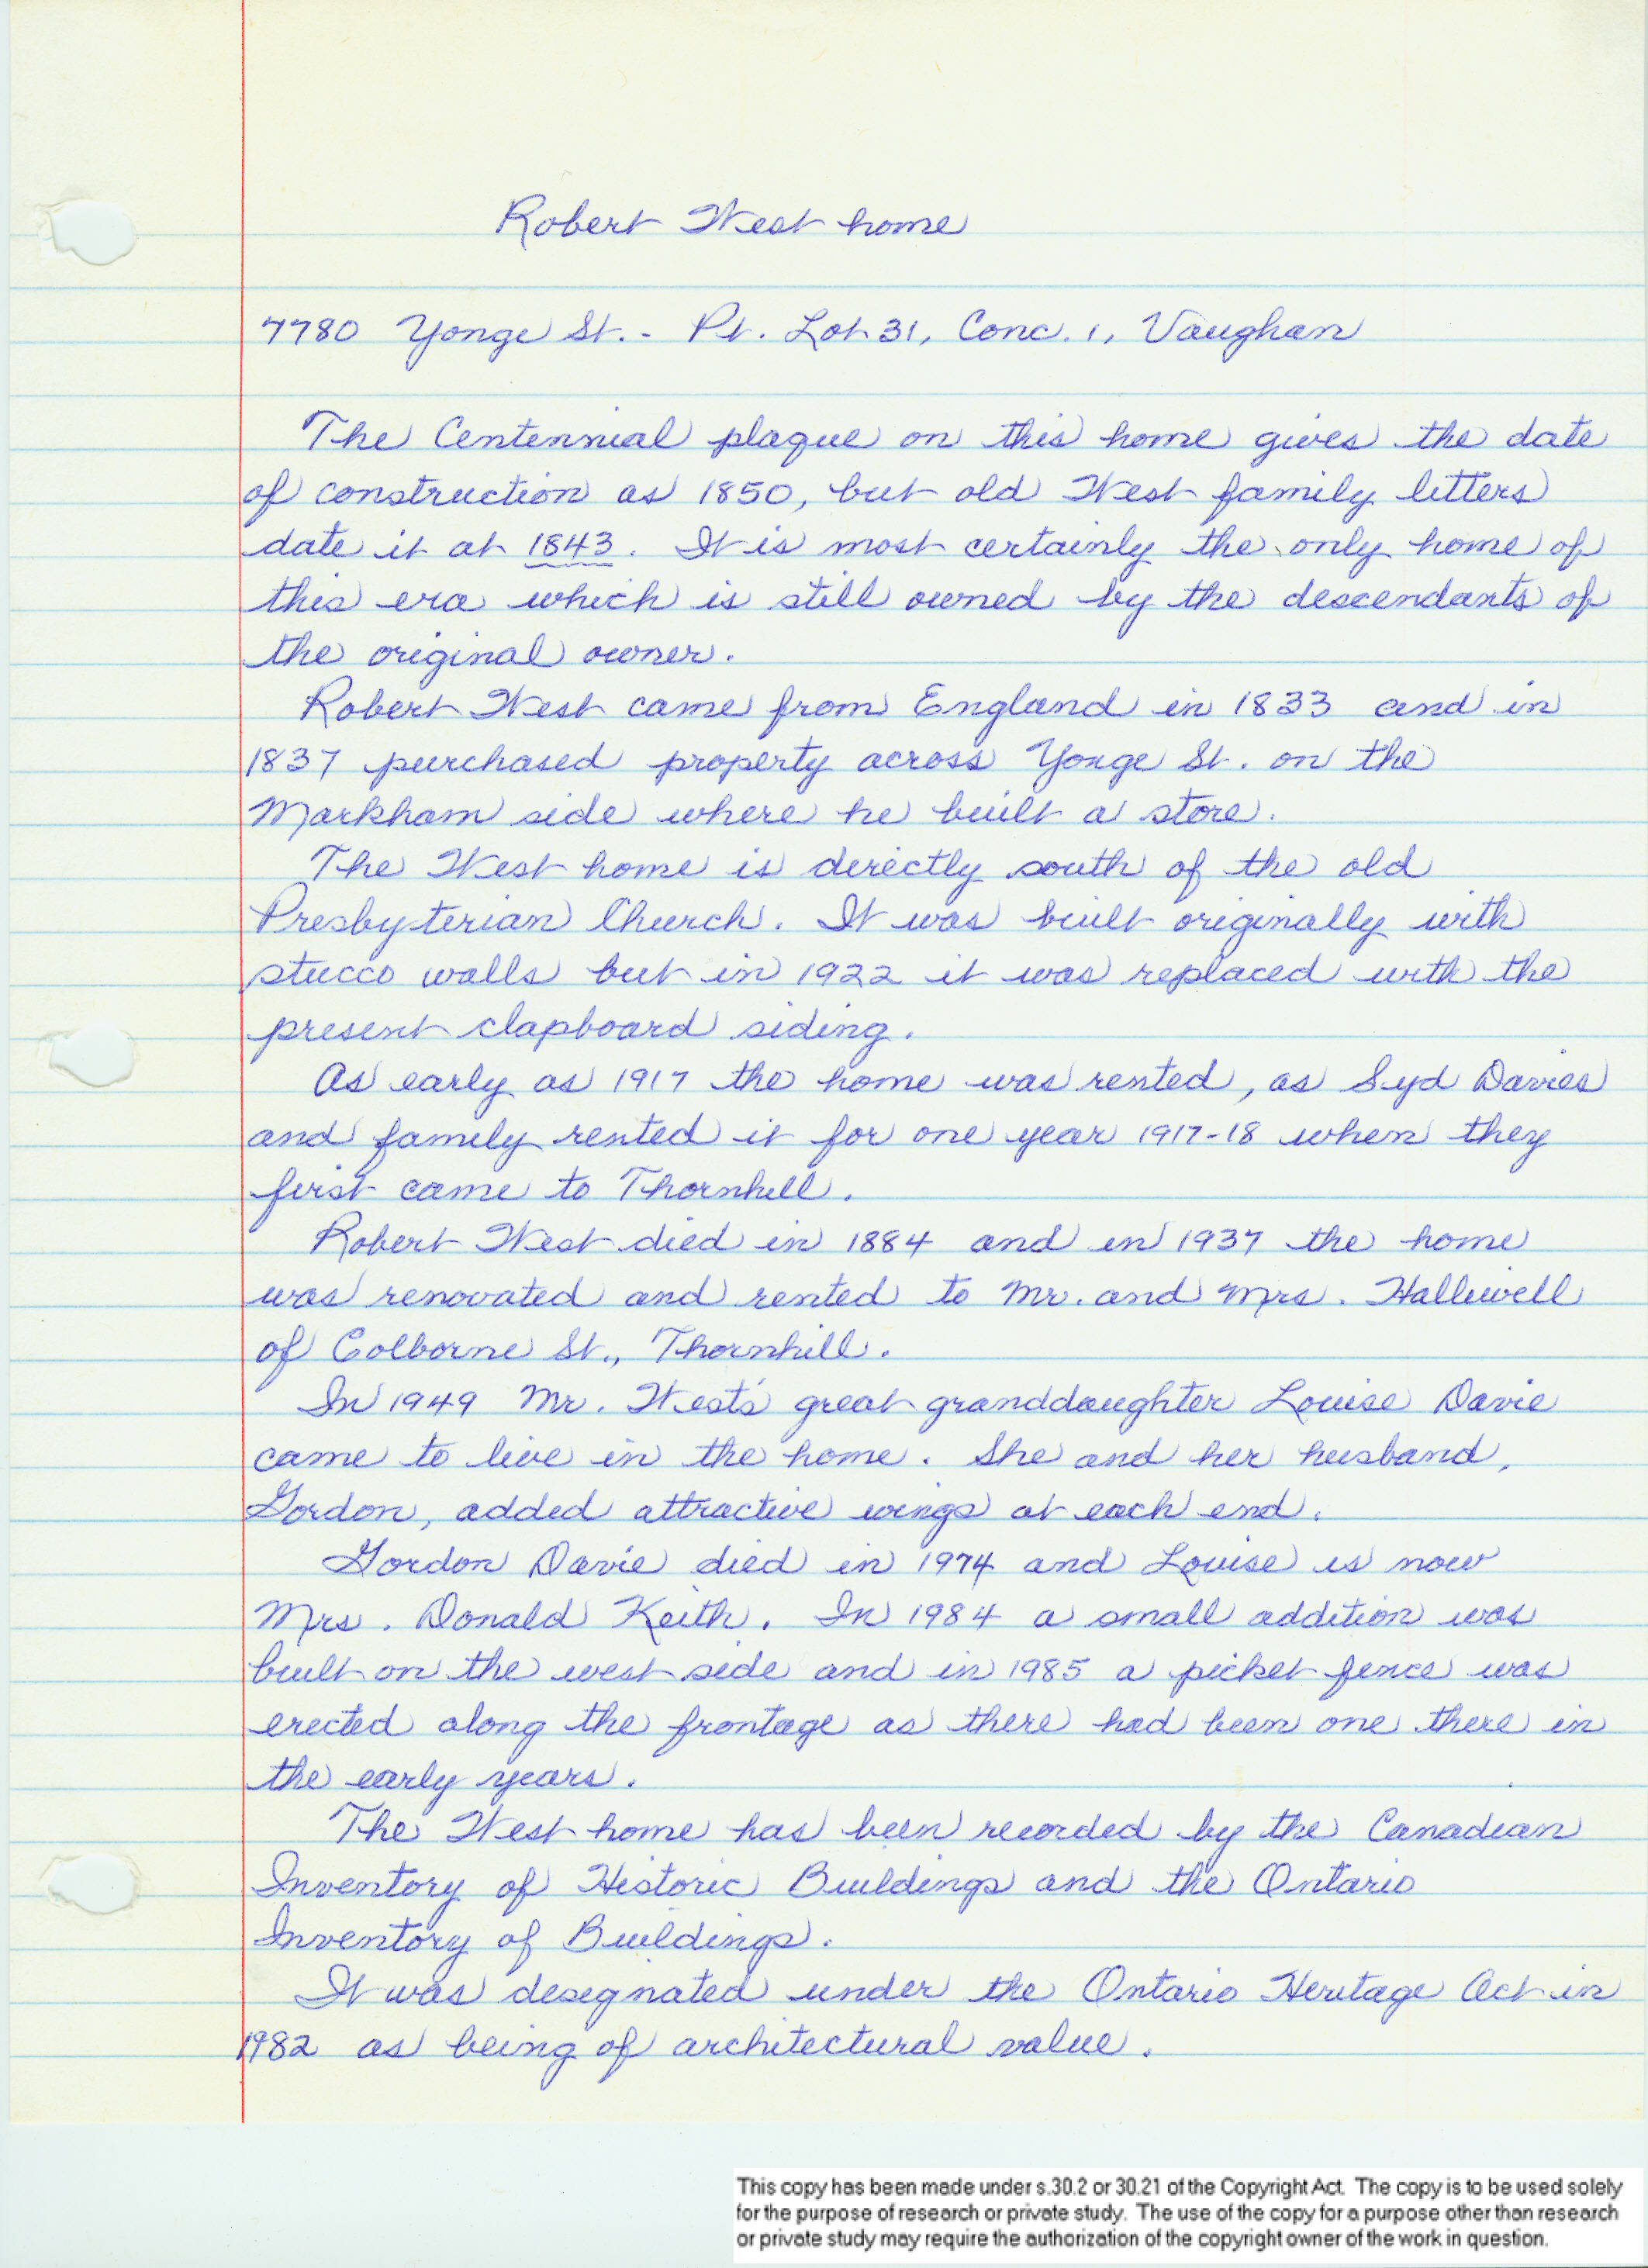 Robert West home
7780 Yonge St. - Pt. Lot 31, Conc. 1, Vaughan
The Centennial plaque on this home gives the date
of construction as 1850, but old West family letters
date it at 1843. It is most certainly the only home of
this era which is still owned by the descendants of
the original owner.
Robert West came from England in 1833 and in
1837 purchased property across Yonge St. on the
Markham side where he built a store.
The West home is directly south of the old
Presbyterian Church. It was built originally with
stucco walls but in 1922 it was replaced with the
present clapboard siding.
As early as 1917 the home was rented, as Syd Davies
and family rented it for one year 1917-18 when they
first came to Thornhill.
Robert West died in 1884 and in 1937 the home
was renovated and rented to Mr. and Mrs. Halliwell
of Colborne St., Thornhill.
In 1949 Mr. West's great granddaughter Louise Davie
came to live in the home. She and her husband,
Gordon, added attractive wings at each end.
Gordon Davie died in 1974 and Louise is now
Mrs. Donald Keith. In 1984 a small addition was
built on the west side and in 1985 a picket fence was
erected along the frontage as there had been one there in
the early years.
The West home has been recorded by the Canadian
Inventory of Historic Buildings and the Ontario
Inventory of Buildings.
It was designated under the Ontario Heritage Act in
1982 as being of architectural value.
This copy has been made under s.30.2 or 30.21 of the Copyright Act. The copy is to be used solely
for the purpose of research or private study. The use of the copy for a purpose other than research
or private study may require the authorization of the copyright owner of the work in question.